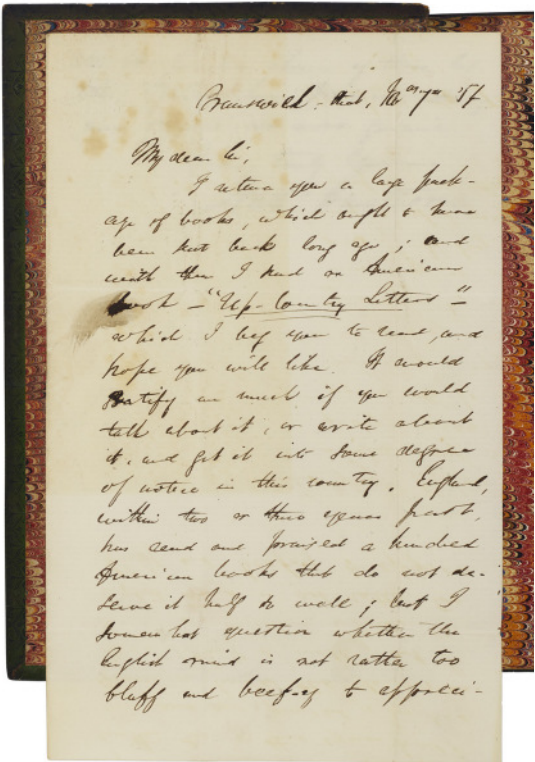 My dear Sir,
I return you a large pack-
age of books, which ought to have
been sent back long ago; and
with them I send an American
book - "Up-Country Letters" -
which I beg you to read, and
hope you will like. It would
gratify me much if you would
talk about it, or write about
it, and get it into some degree
of notice in this country. England,
within two or three years past,
has read and praised a hundred
American books that do not de-
serve it half so well; but I
somewhat question whether the
English mind is not rather too
bluff and beef-y to appreci-